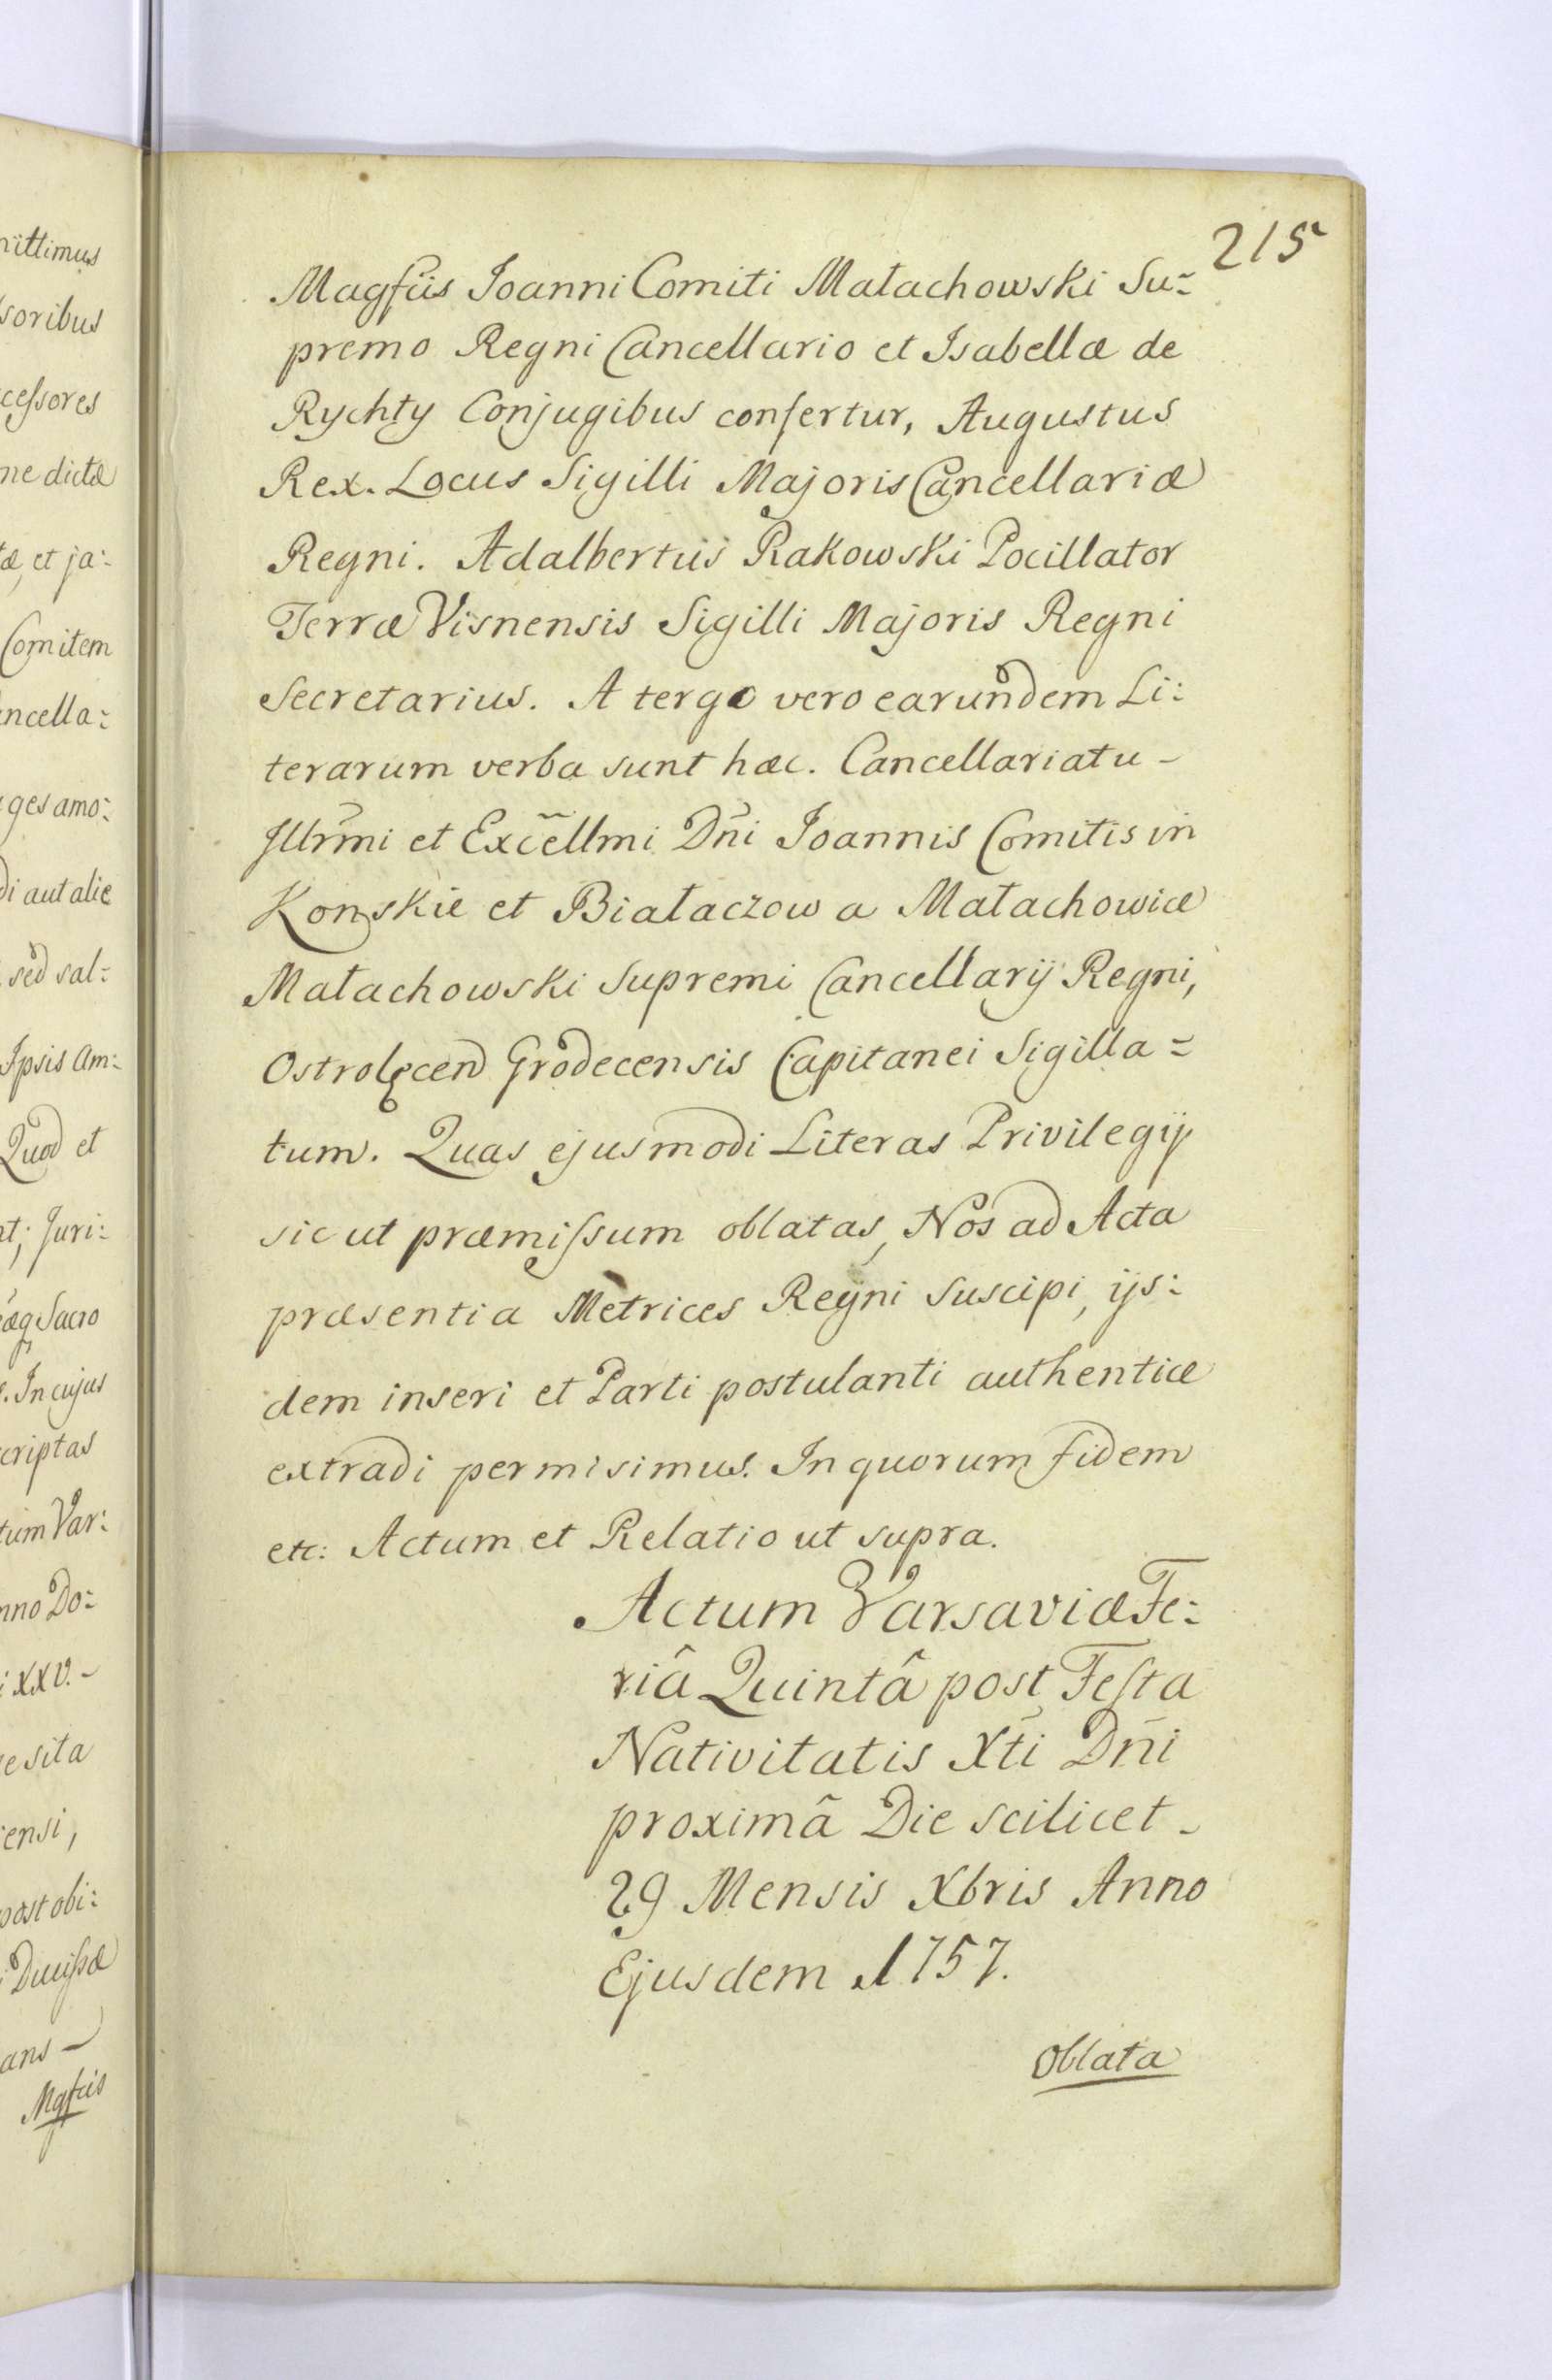 215
Magfiis Joanni Comiti Małachowski Su=
premo Regni Cancellario et Isabellæ de
Rychty Conjugibus confertur, Augustus
Rex. Locus Sigilli Majoris Cancellariæ
Regni. Adalbertus Rakowski Pocillator
Terræ Visnensis Sigilli Majoris Regni
Secretarius. A tergo vero earundem Li:
terarum verba sunt hæc. Cancellariatu -
Jllrm̃i et Exc̃ellmi Dñi Joannis Comitis in
Konskie et Białaczow a Małachowice
Małachowski Supremi Cancellarij Regni,
Ostrolęcen Grodecensis Capitanei Sigilla=
tum. Quas ejusmodi Literas Privilegij
sic ut præmissum oblatas, Nos ad Acta
præsentia Metrices Regni Suscipi, ijs:
dem inseri et Parti postulanti authentice
extradi permisimus. In quorum fidem
etc: Actum et Relatio ut supra.
Actum Varsaviæ Fe:
riâ Quintâ post Festa
Nativitatis Xti Dñi
proximâ Die scilicet -
29 Mensis Xbris Anno
Ejusdem 1757.
Oblata
nittimus
soribus
cessores
ne dictæ
æ, et ja:
Comitem
ncella:
ges amo:
di aut alie
sed sal:
Ipsis am:
Quod et
nt; Juri:
æq Sacro
. In cujus
criptas
tum Var:
nno Do:
i XXV. -
e sita
ensi,
post obi:
ans -
Mgfiis